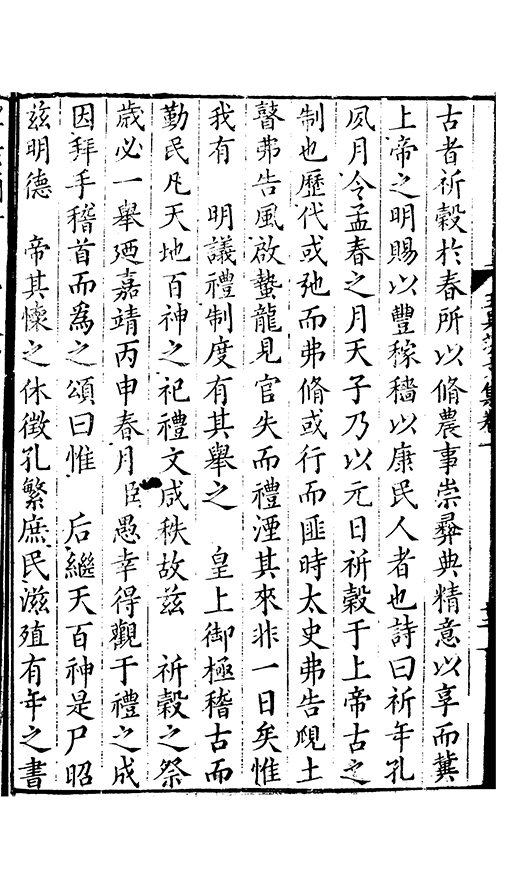 古者祈穀於春所以脩農事崇彞典精意以享而冀
上帝之明賜以豐稼穡以康民人者也詩曰祈年孔
夙月令孟春之月天子乃以元日祈穀于上帝古之
制也歷代或弛而弗脩或行而匪時太史弗告覛土
瞽弗告風啟蟄龍見官失而禮湮其來非一日矣惟
我有　明議禮制度有其舉之　皇上御極稽古而
勤民凡天地百神之祀禮文咸秩故茲　祈穀之祭
歲必一舉廼嘉靖丙申春月臣愚幸得觀于禮之成
因拜手稽首而為之頌曰惟　后繼天百神是尸昭
茲明德　帝其懷之休徵孔繁庶民滋殖有年之書